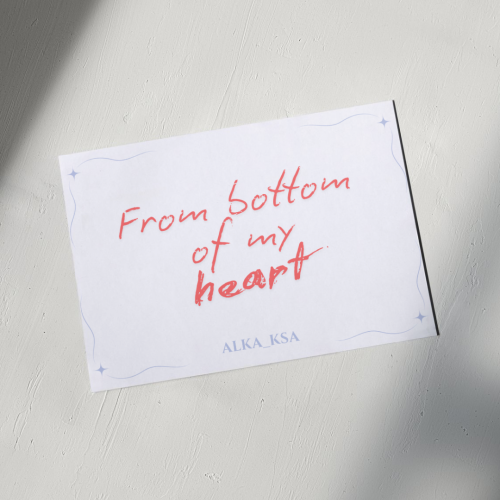 From bottom
of my
heart
ALKA_KSA